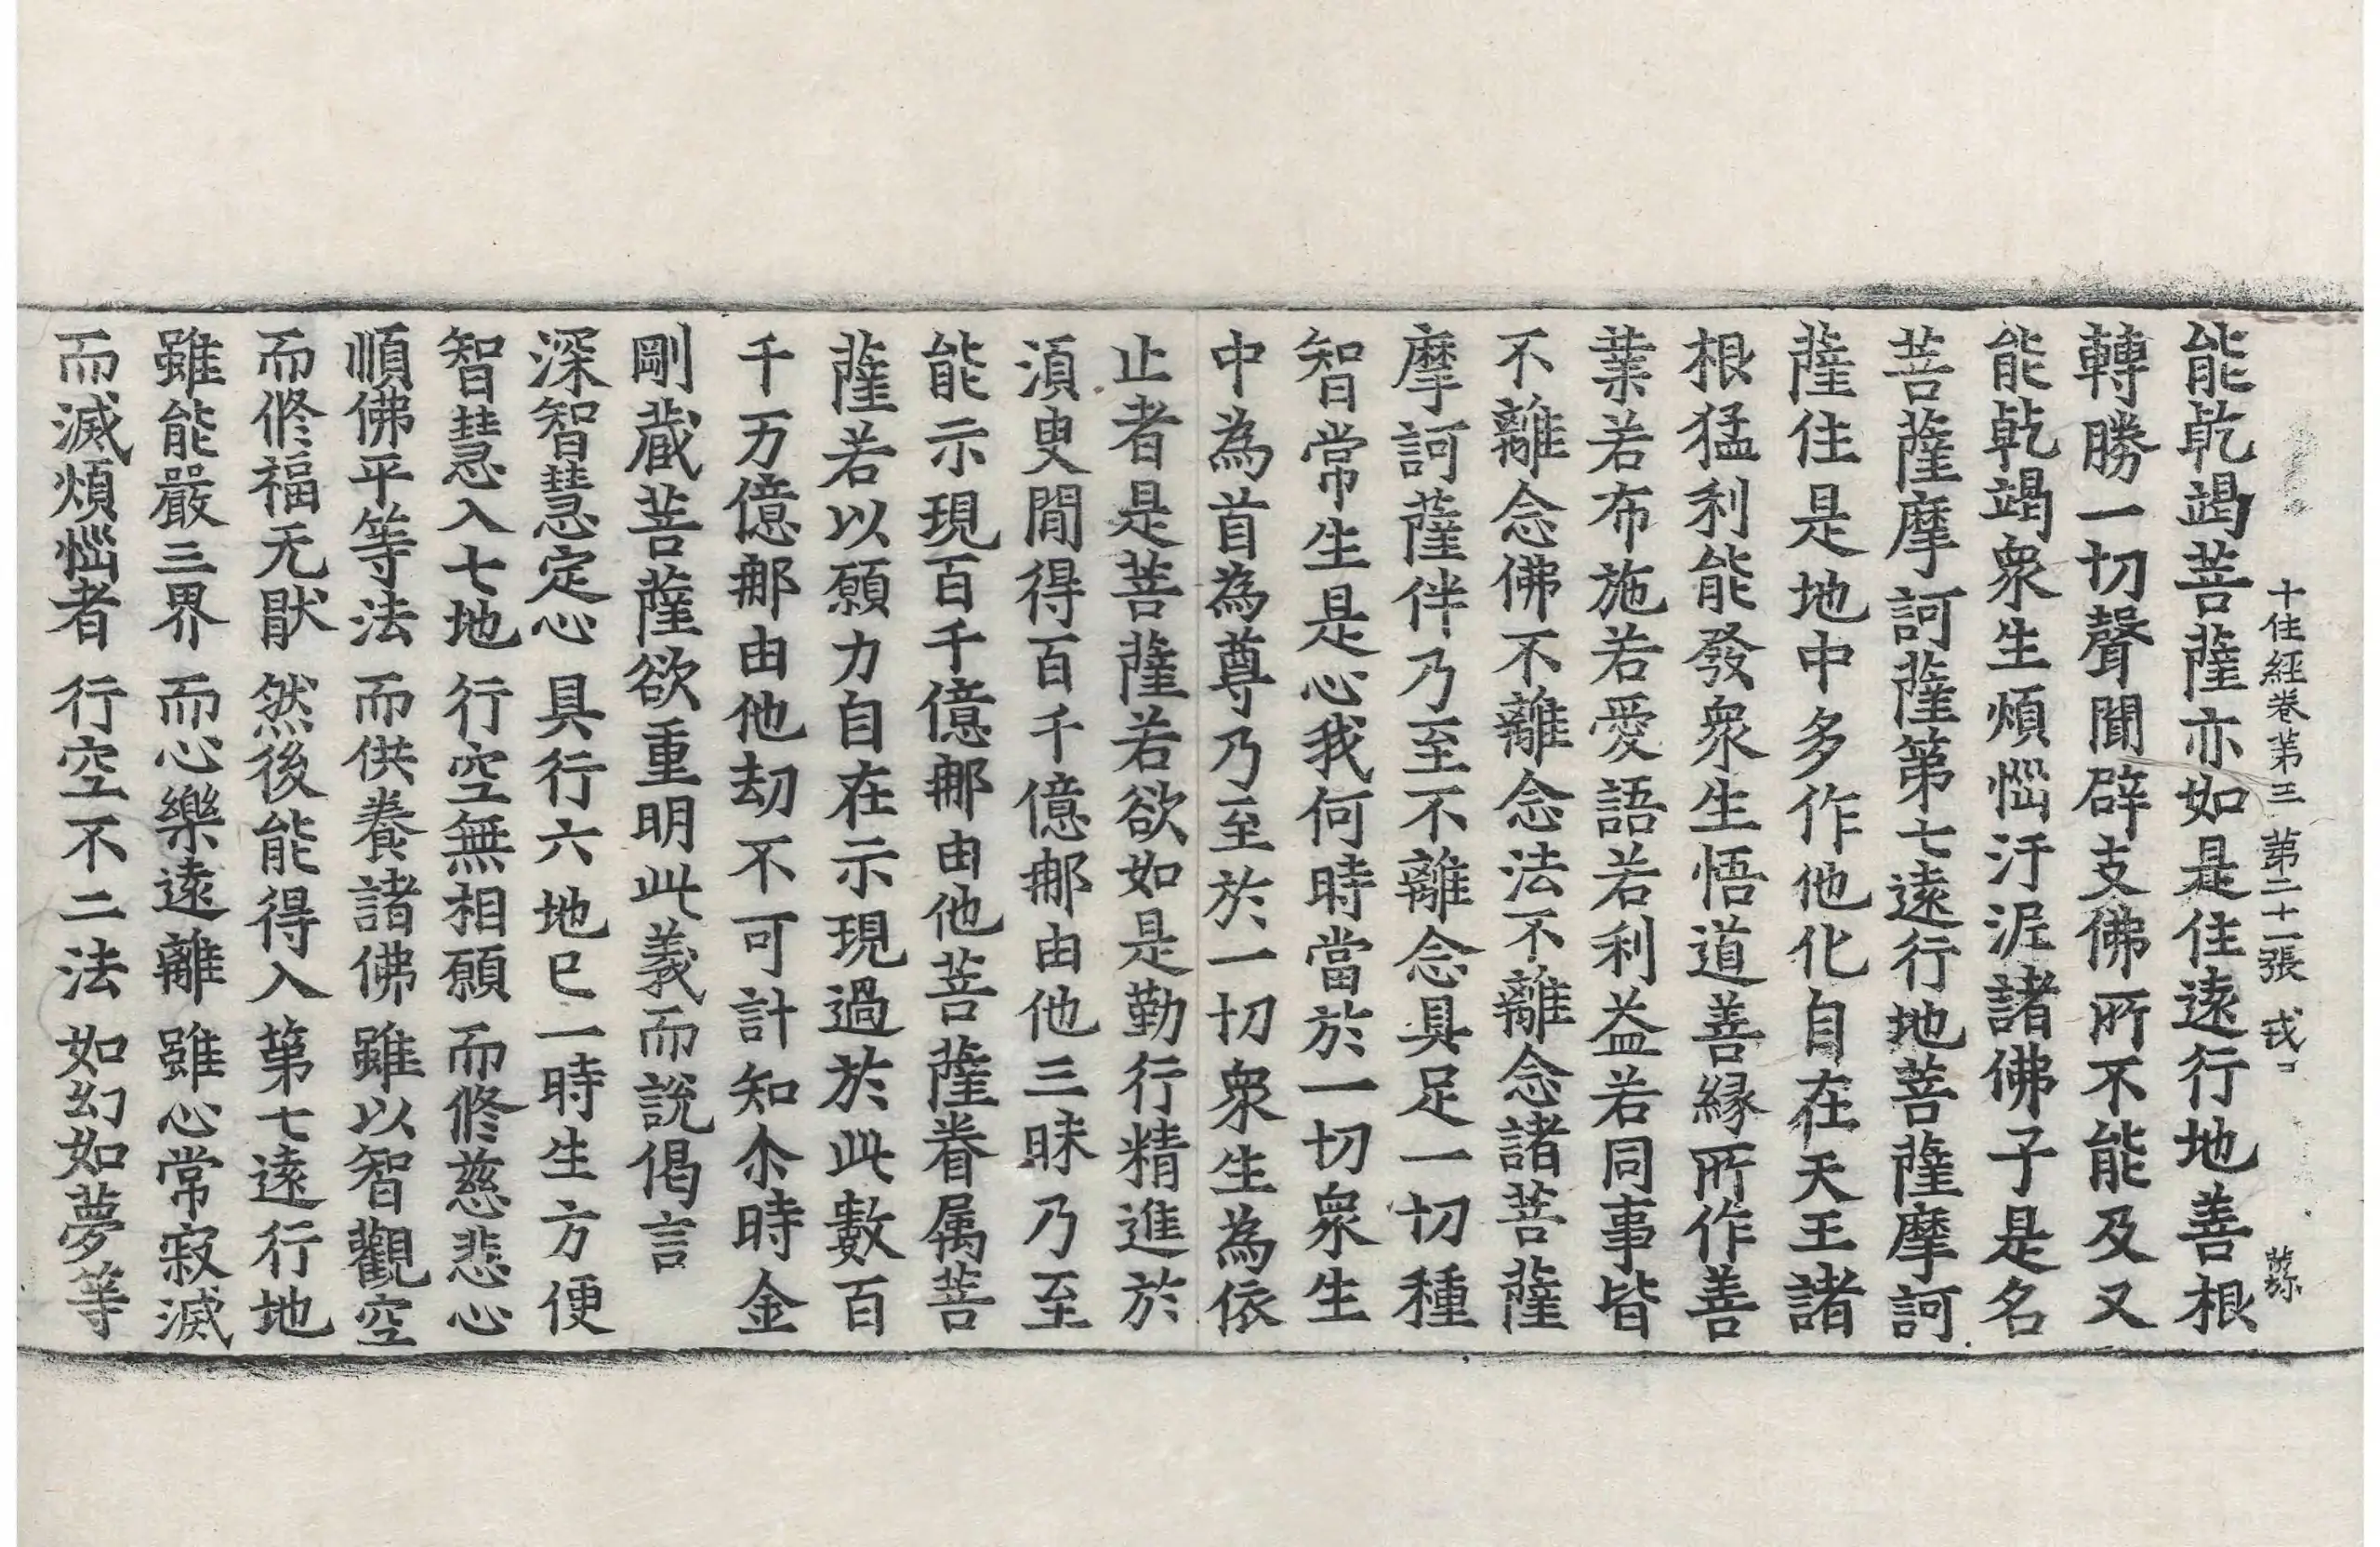 十住經卷第三 第二十一張 戎
能乾竭菩薩亦如是住遠行地善根
轉勝一切聲聞辟支佛所不能及又
能乾竭衆生煩惱汙泥諸佛子是名
菩薩摩訶薩第七遠行地菩薩摩訶
薩住是地中多作他化自在天王諸
根猛利能發衆生悟道善緣所作善
業若布施若愛語若利益若同事皆
不離念佛不離念法不離念諸菩薩
摩訶薩伴乃至不離念具足一切種
智常生是心我何時當於一切衆生
中為首為尊乃至於一切衆生為依
止者是菩薩若欲如是勤行精進於
湏臾間得百千億那由他三昧乃至
能示現百千億那由他菩薩眷属菩
薩若以願力自在示現過於此數百
千万億那由他劫不可計知尒時金
剛蔵菩薩欲重明此義而說偈言
深智慧定心 具行六地已 一時生方便
智慧入七地 行空無相願 而修慈悲心
順佛平等法 而供養諸佛 雖以智觀空
而修福无猒 然後能得入 第七遠行地
雖能嚴三界 而心樂遠離 雖心常寂滅
而滅煩惱者 行空不二法 如幻如夢等